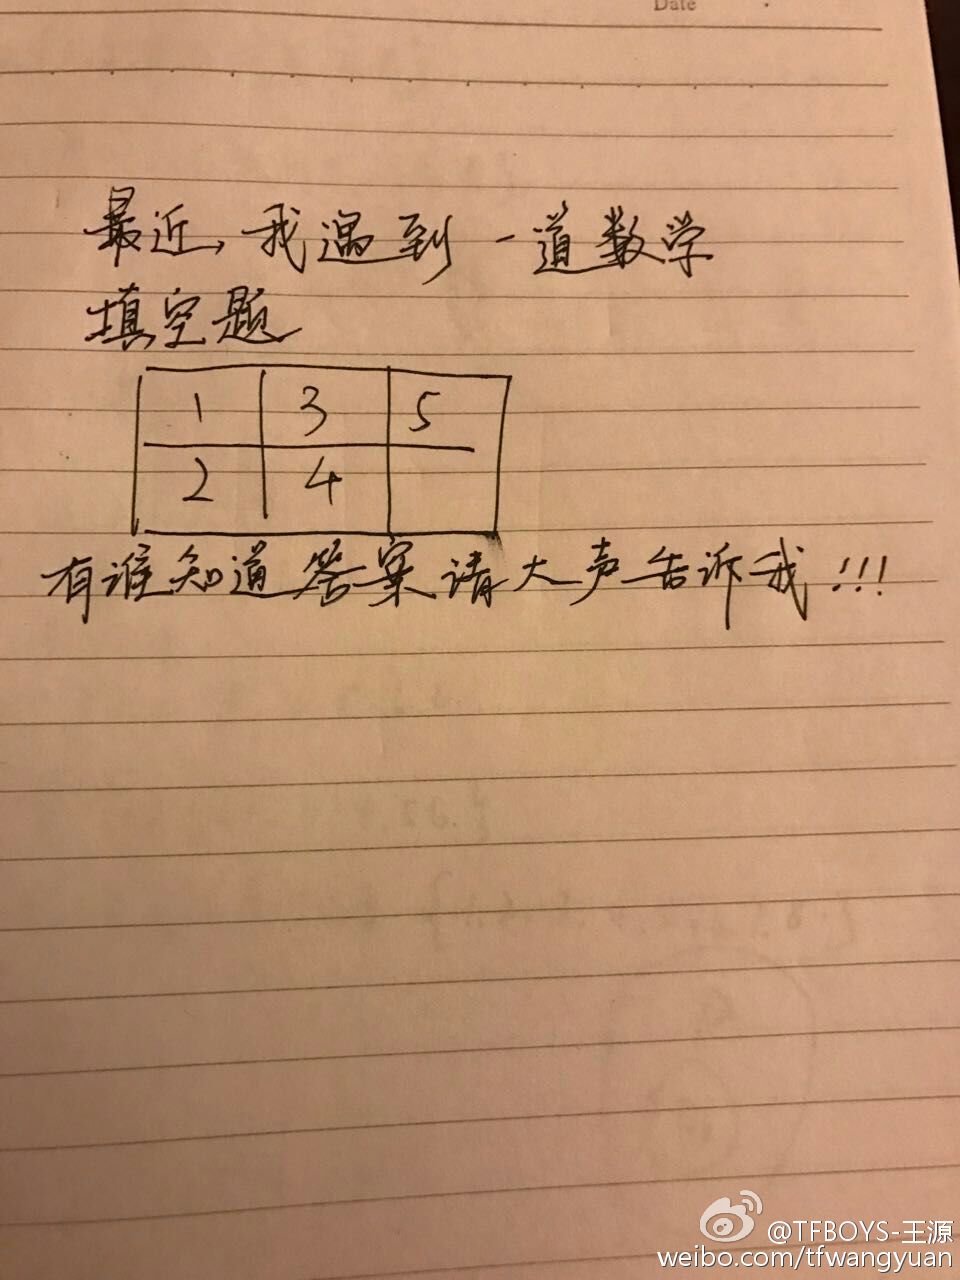 Date
最近，我遇到一道数学
填空题
1 3 5
2 4
有谁知道答案请大声告诉我!!!
@TFBOYS-王源
weibo.com/tfwangyuan